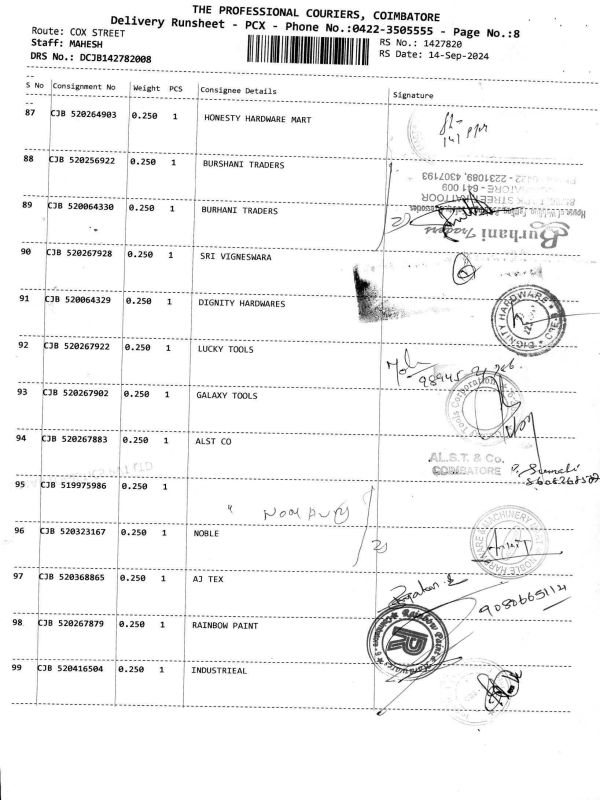 THE PROFESSIONAL COURIERS, COIMBATORE
Delivery Runsheet - PCX - Phone No.:0422-3505555 - Page No.:8
Route: COX STREET
Staff: MAHESH
DRS No.: DCJB142782008
RS No.: 1427820
RS Date: 14-Sep-2024
S No Consignment No Weight PCS Consignee Details Signature
87 CJB 520264903 0.250 1 HONESTY HARDWARE MART
88 CJB 520256922 0.250 1 BURSHANI TRADERS
2231089, 4307193
641 009
89 CJB 520064330 0.250 1 BURHANI TRADERS
Burhani Traders
90 CJB 520267928 0.250 1 SRI VIGNESWARA
91 CJB 520064329 0.250 1 DIGNITY HARDWARES
DIGNITY HARDWARE
92 CJB 520267922 0.250 1 LUCKY TOOLS
93 CJB 520267902 0.250 1 GALAXY TOOLS
Tools Corporation
94 CJB 520267883 0.250 1 ALST CO
AL.S.T. & Co.
COIMBATORE
95 CJB 519975986 0.250 1
96 CJB 520323167 0.250 1 NOBLE
HARDWARE & MACHINERY MART NOBLE
97 CJB 520368865 0.250 1 AJ TEX
9080665112
98 CJB 520267879 0.250 1 RAINBOW PAINT
Rainbow Paints & Hardwares
99 CJB 520416504 0.250 1 INDUSTRIEAL